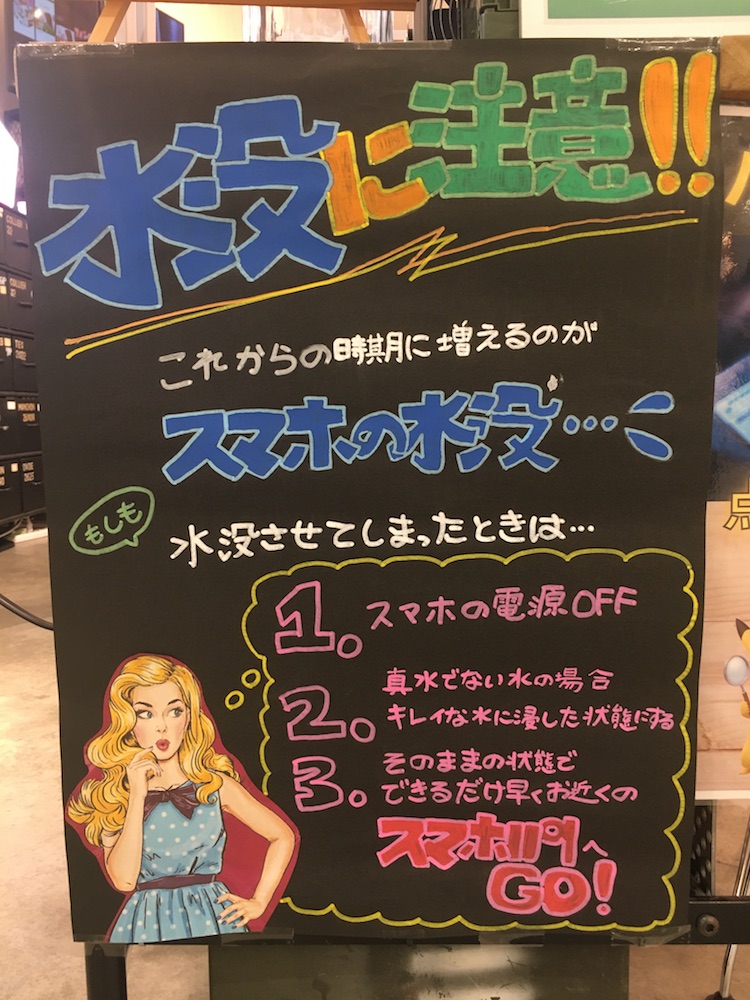 水没に注意!!
これからの時期に増えるのが
スマホの水没…
もしも
水没させてしまったときは…
1. スマホの電源OFF
2. 真水でない水の場合
キレイな水に浸した状態にする
3. そのままの状態で
できるだけ早くお近くの
スマホリペアへ
GO!
点